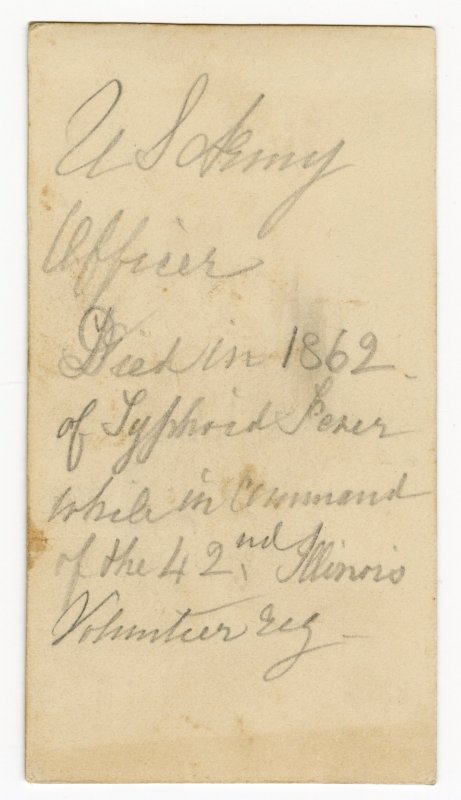 U S Army
Officer
Died in 1862
of Typhoid Fever
while in command
of the 42nd Illinois
Volunteer reg